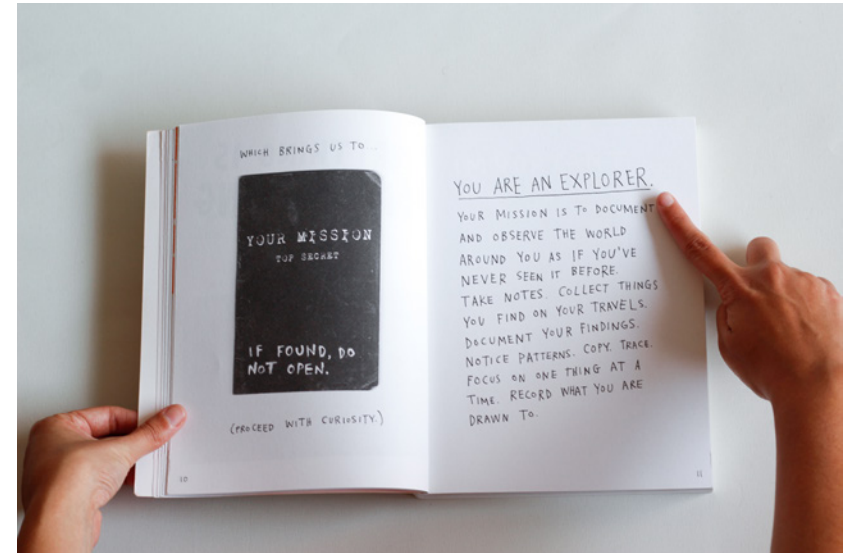 WHICH BRINGS US TO
YOUR MISSION
TOP SECRET
IF FOUND, DO
NOT OPEN.
(PROCEED WITH CURIOSITY.)
10
YOU ARE AN EXPLORER.
YOUR MISSION IS TO DOCUMENT
AND OBSERVE THE WORLD
AROUND YOU AS IF YOU'VE
NEVER SEEN IT BEFORE.
TAKE NOTES. COLLECT THINGS
YOU FIND ON YOUR TRAVELS.
DOCUMENT YOUR FINDINGS.
NOTICE PATTERNS. COPY. TRACE.
FOCUS ON ONE THING AT A
TIME. RECORD WHAT YOU ARE
DRAWN TO.
11